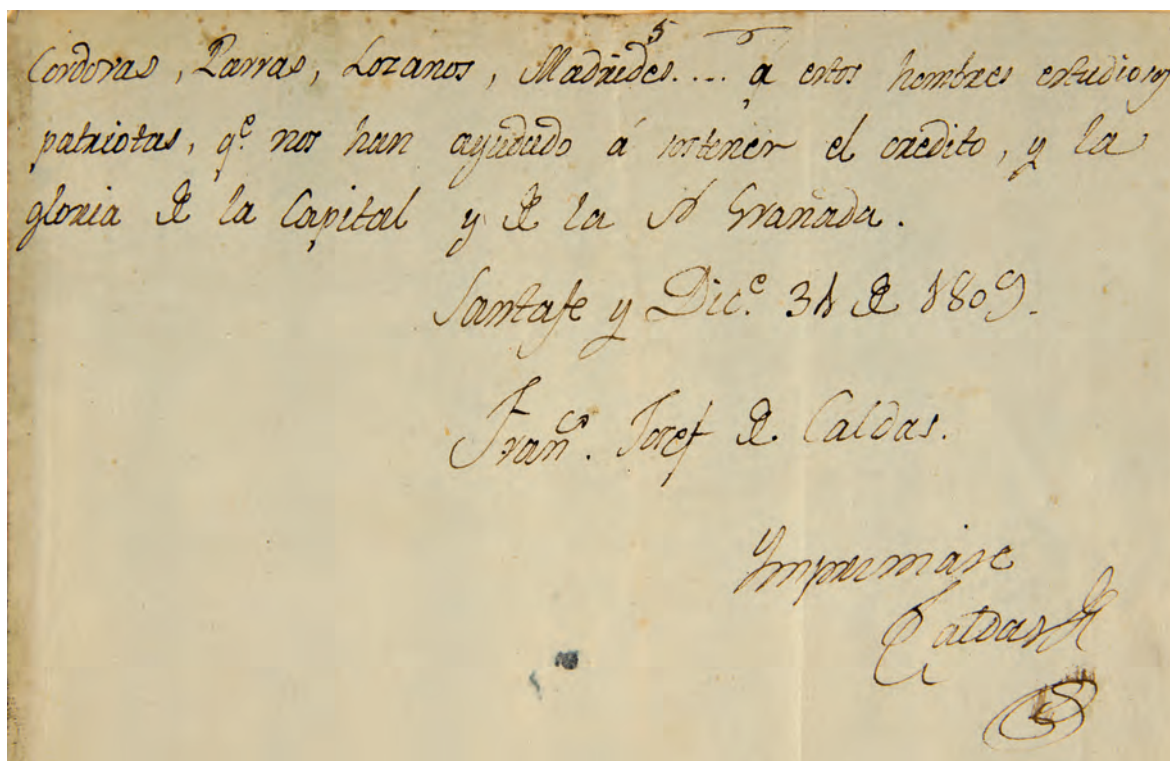 Cordovas, Parras, Lozanos, Madrides.... a estos hombres estudiosos
patriotas, q.e nos han ayudado á sostener el credito, y la
gloria de la Capital y de la N Granada.
Santafe y Dic.e 31 de 1809.
Fran.co Josef de Caldas.
Ymprimase
Caldas